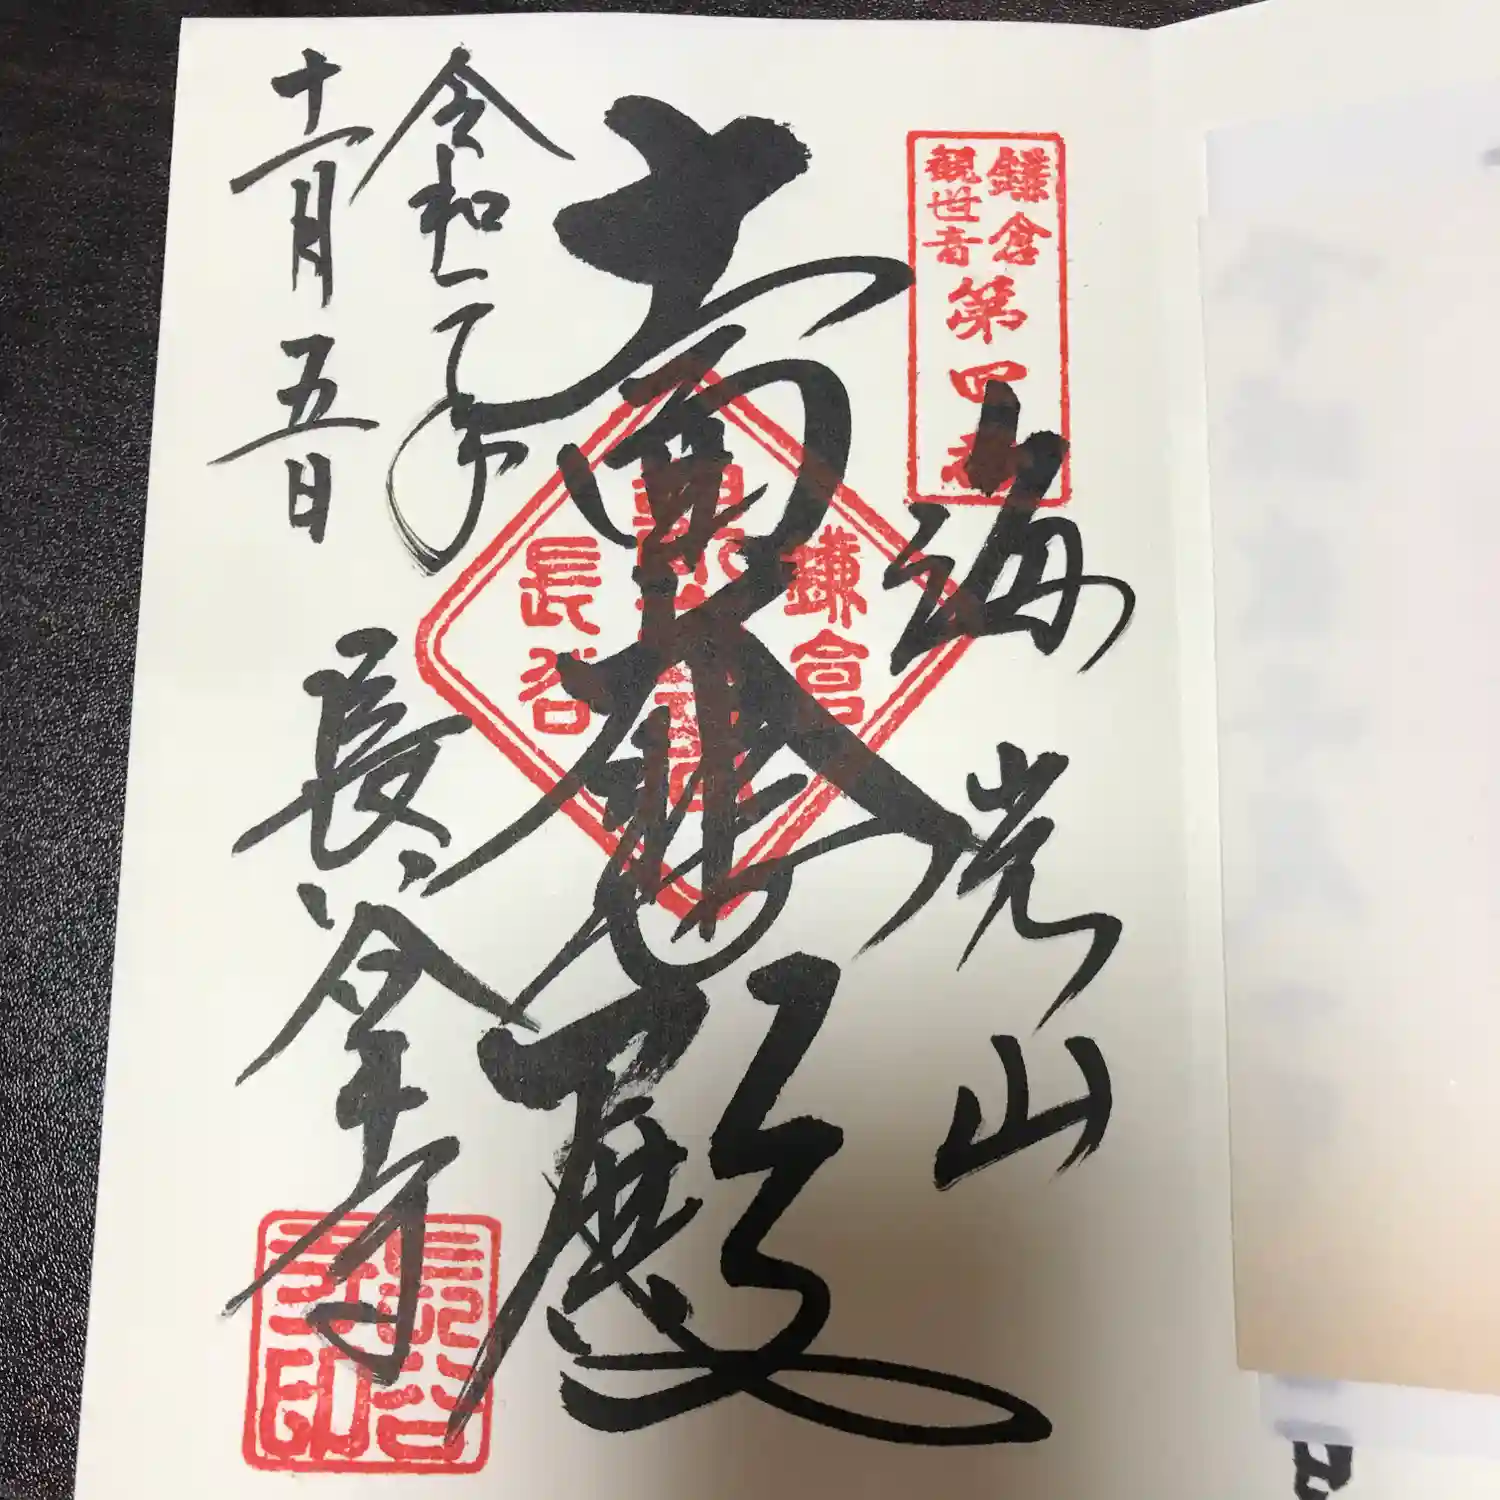 鎌倉
観世音
第四番
海光山
十一面大悲殿
鎌倉
長谷
令和元年
十一月五日
長谷寺
長谷寺印